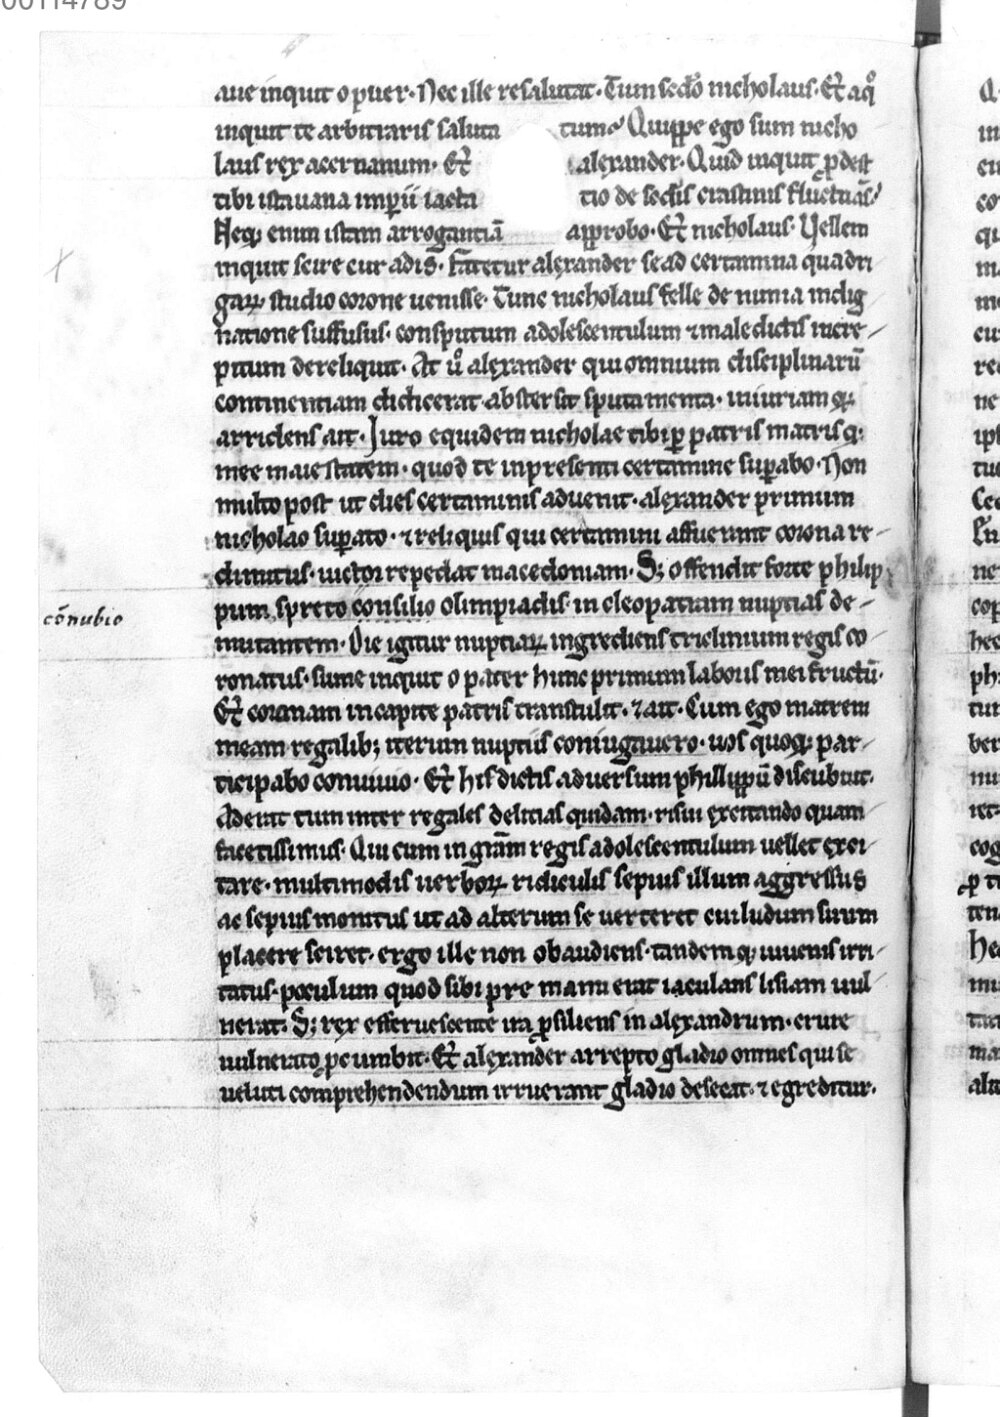 00114789
aue inquit o puer. Nec ille resalutat. Tum scd̄o nicholaus. Et̄ aq͛
inquit te arbitraris saluta tum? Quippe ego sum nicho
laus rex acernanum. Et̄ alexander. Quid inquit ꝓdest
tibi ista uana imꝑii iacta tio de secl̄is crastinis fluctuās?
Neq; enim istam arrogantiā approbo. Et̄ nicholaus. Vellem
inquit scire cur adis. Fatetur alexander se ad certamina quadri
gaꝝ studio corone uenisse. Tunc nicholaus felle de nimia indig
natione suffusus. consputum adolescentulum ⁊ maledictis incre-
pitum dereliquit. At u͛o alexander qui omnium disciplinarū
continentiam didicerat. abstersit sputamenta. iniuriamq;
arridens ait. Iuro equidem nicholae tibi ꝑ patris matrisq;
mee maiestatem. quod te in presenti certamine suꝑabo. Non
multo post ut dies certaminis aduenit. alexander primum
nicholao suꝑato. ⁊ reliquis qui certamini affuerunt corona re-
dimitus. uictor repedat macedoniam. S; offendit forte philip
pum spreto consilio olimpiadis in cleopatram nuptias de-
cōnubio
mutantem. Die igitur nuptiaꝝ ingrediens triclinium regis co-
ronatus. sume inquit o pater hunc primum laboris mei fructū.
Et̄ coronam in capite patris transtulit. ⁊ ait. Cum ego matrem
meam regalib; iterum nuptiis coniugauero. uos quoq; par-
ticipabo conuiuio. Et̄ his dictis aduersum phillippū discubuit.
Aderat tum inter regales delicias quidam. risui excitando quam
facetissimus. Qui cum in grām regis adolescentulum uellet exci-
tare. multimodis uerboꝝ ridiculis sepius illum aggressus
ac sepius monitus ut ad alterum se uerteret cui ludum suum
placere sciret. ergo ille non obaudiens. tandemq; iuuenis irri-
tatus. poculum quod sibi pre manu erat iaculans lisiam uul
nerat. S; rex efferuescente ira ꝓsiliens in alexandrum. crure
uulnerato ꝓcumbit. Et̄ alexander arrepto gladio omnes qui se
ueluti comprehendendum irruerant gladio desecat. ⁊ egreditur.